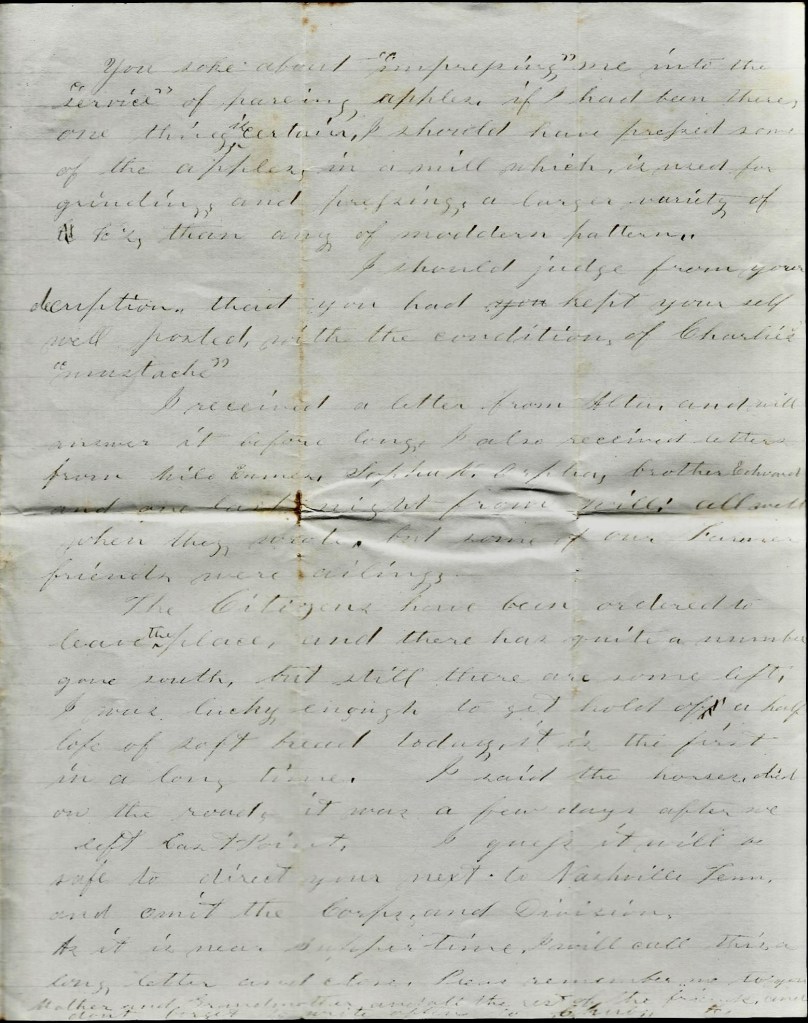 You soke about "impressing" me into the
"service" of pareing apples. if I had been there,
one thing is certain, I should have pressed some
of the apples, in a mill which, is used for
grinding, and pressing, a larger variety of
k's, than any of moddern pattern.
I should judge from your
decription. that you had you kept your self
well posted, with the condition, of Charlie's
"mustache"
I received a letter from Alta, and will
answer it before long, I also received letters
from Milo Eames, Orpha, brother Edward
and one last night from Will. all well
when they wrote, but some of our Farmer
friends were ailing,
The Citizens have been ordered to
leave the place, and there has quite a number
gone south, but still there are some left,
I was lucky enough to get hold of a half
lofe of soft bread today, it is the first
in a long time. I said the horses died
on the road, it was a few days after we
left East Point. I guess it will be
safe to direct your next to Nashville Tenn.
and omit the Corps, and Division.
As it is near supper time, I will call this a
long letter and close. remember me to your
Mother and Grandmother, and all the rest of the friends, and
dont forget write often to